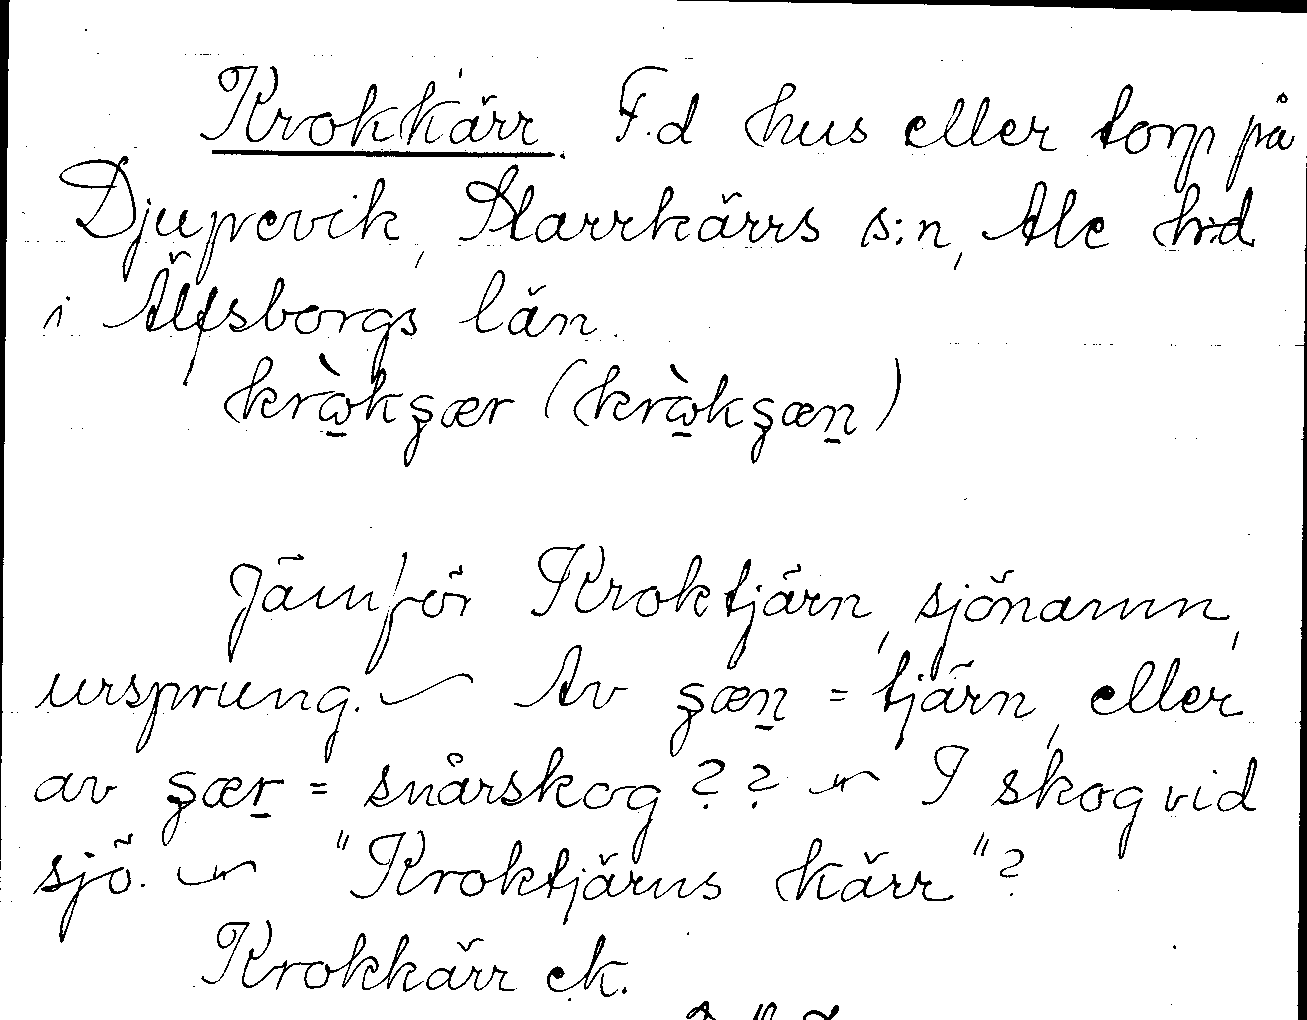 Krokkärr. F.d hus eller torp på
Djupevik, Starrkärrs s:n, Ale hd
i Älfsborgs län.
kròkşær (kròkşæn)
Jämför Kroktjärn, sjönamn,
ursprung. ~ Av şæn = tjärn, eller
av şær = snårskog?? ~ I skog vid
sjö. ~ "Kroktjärns kärr"?
Krokkärr ek.